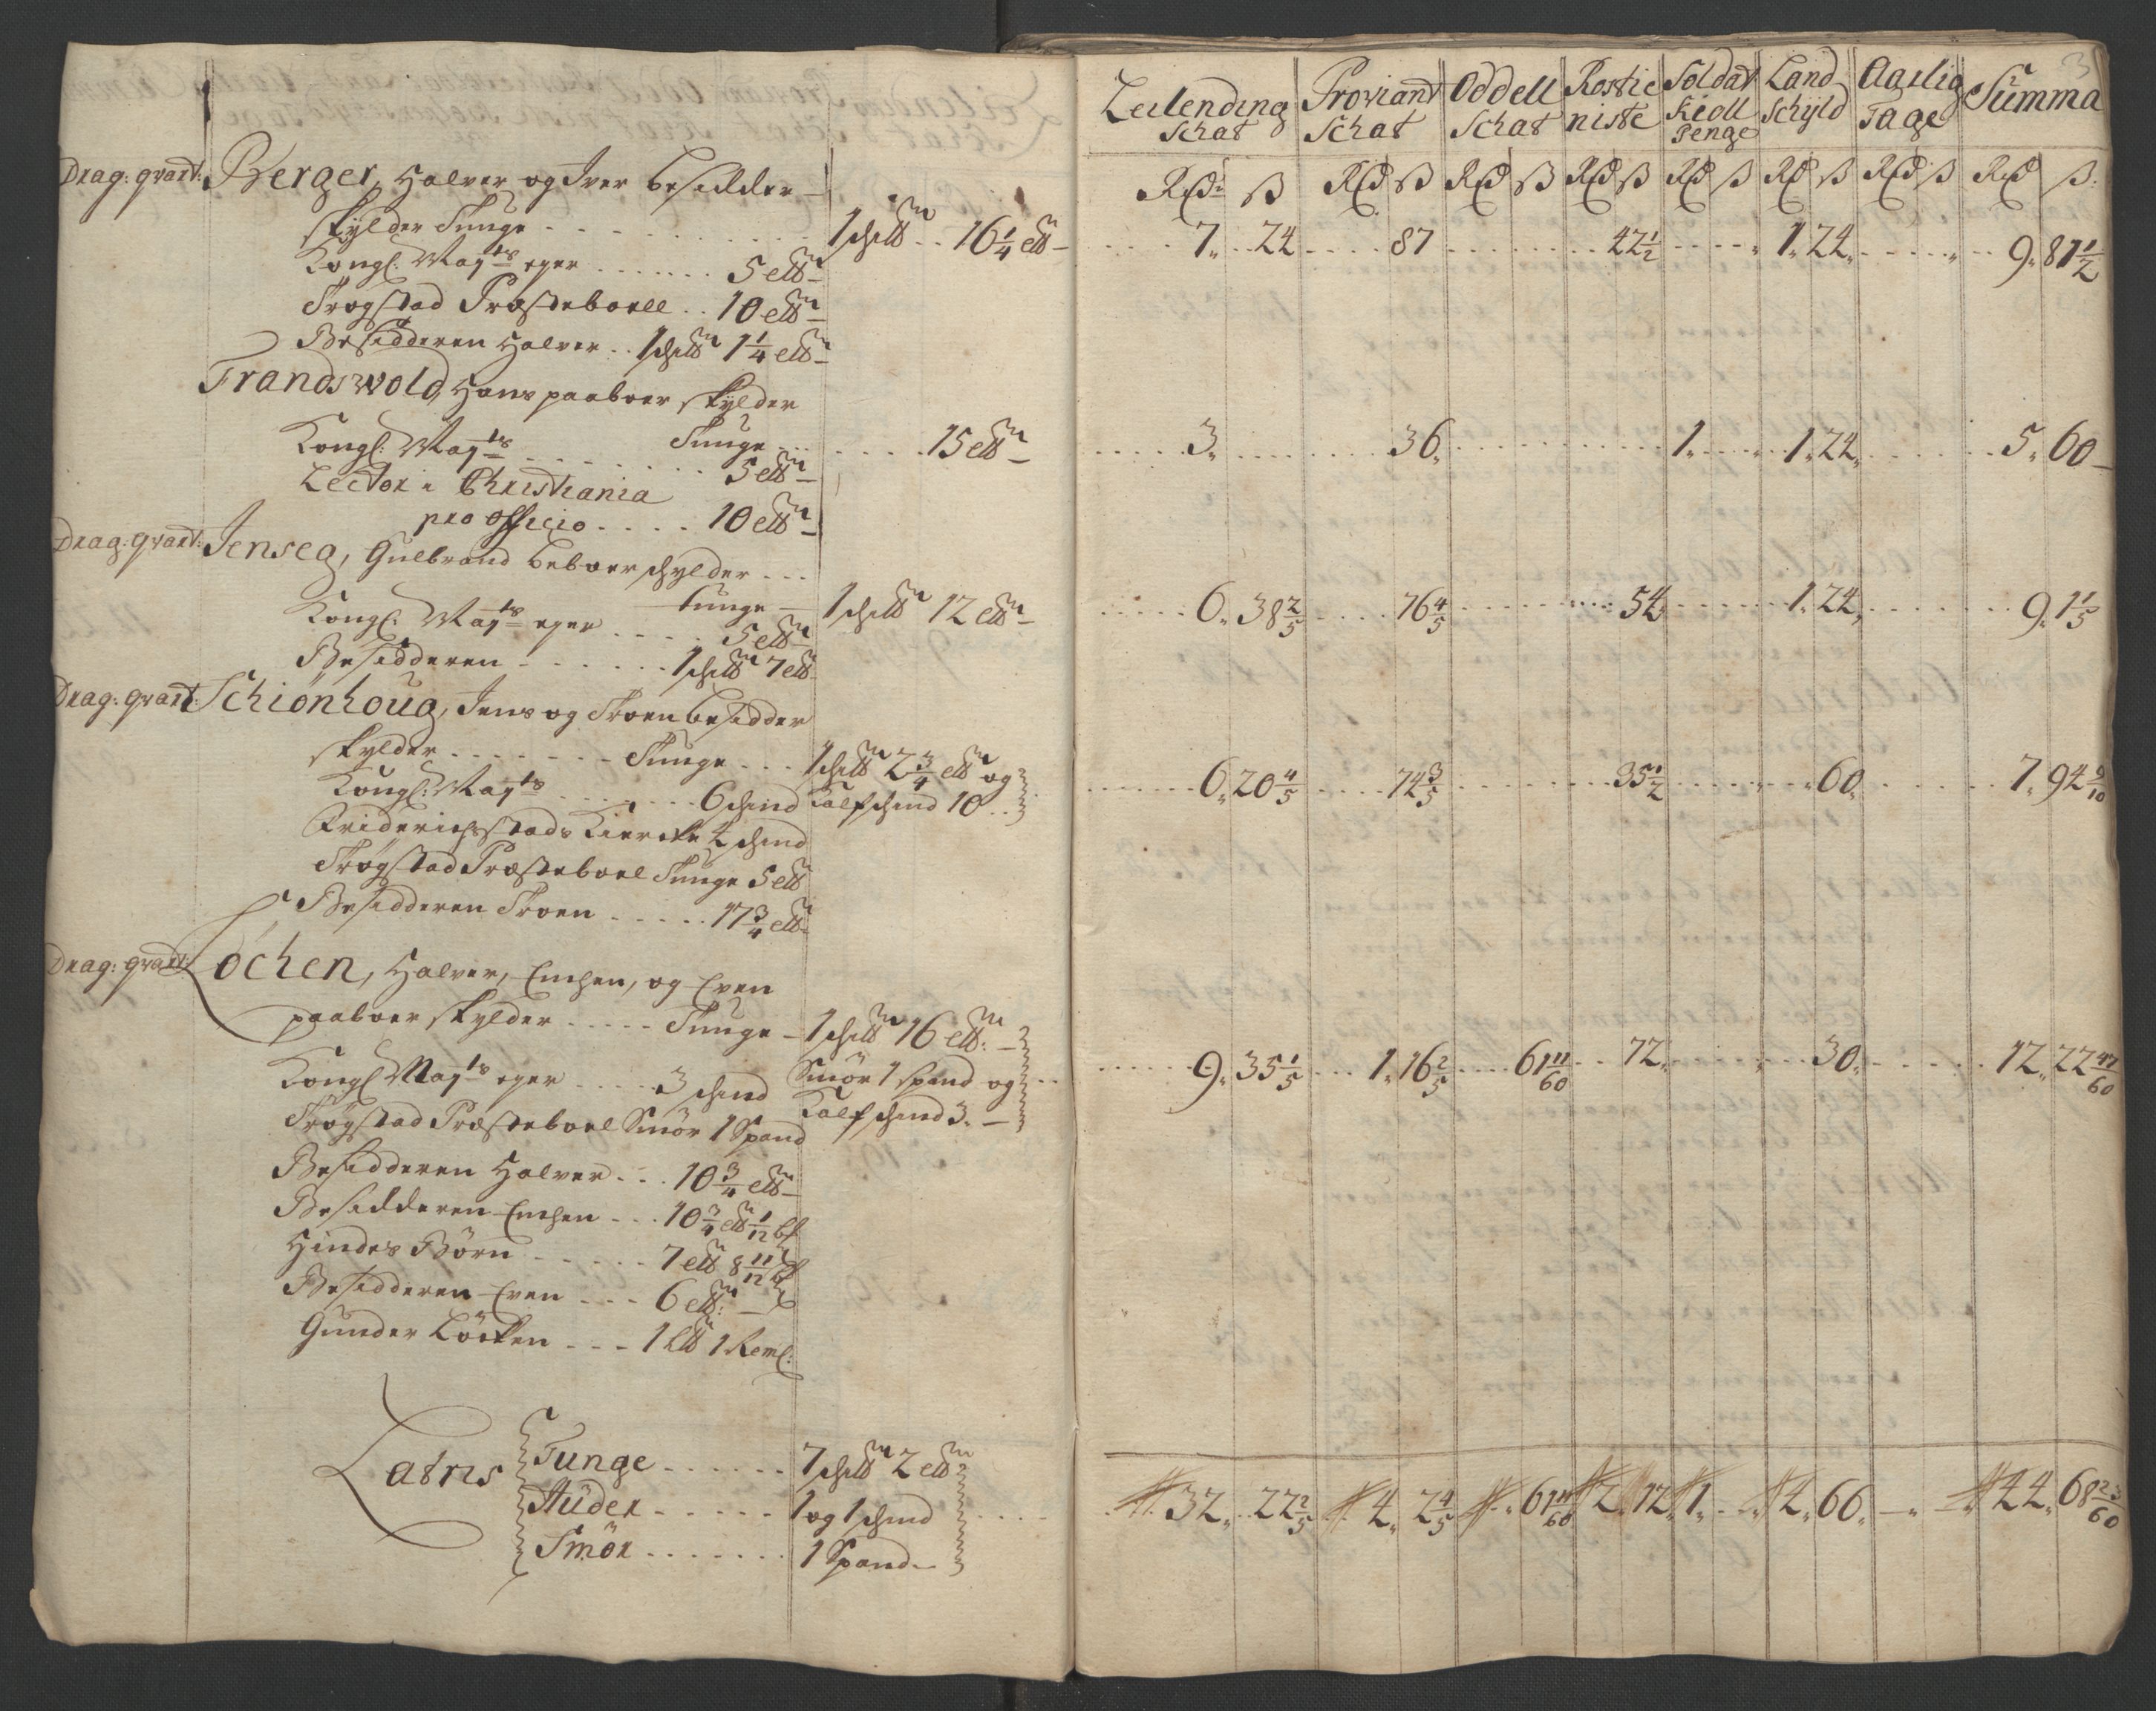 Drag: qvart: Berger, Halver og Iver besidder
skylder Tunge . . . 1 sk℔ . . 16 1/4 ℔
Kongl: Mayts eger . . . . . 5 ℔
Trøgstad Præsteboell . . 10 ℔
Besidderen Halver . . 1 sk℔ 1 1/4 ℔
Trandswold, Hans paaboer skylder
Tunge . . . 15 ℔
Kongl: Mayts . . . . . 5 ℔
Lector i Christiania
pro officio . . . . 10 ℔
Drag: qvart: Jenseg, Gulbrand beboer schylder . . .
tunge — 1 sk℔ 12 ℔
Kongl: Mayts eger . . . . 5 ℔
Besidderen . . . . . . 1 sk℔ 7 ℔
Drag: qvart: Schiønhoug, Jens og besidder
skylder . . . . . . Tunge . . . 1 sk℔ 2 3/4 ℔ og
Kalfschind 10 . .
Kongl: Mayts . . . . . . 6 schind
Friderichsstads Kiercke 4 schind
Trøgstad Præsteboel Tunge 5 ℔
Besidderen . . . . . 17 3/4 ℔
Drag: qvart: Løchen, Halver, Emben, og Even
paaboer skylder . . . . . Tunge — 1 sk℔ 16 ℔:
Smør 1 spand og
Kalfschind 3. —
Kongl Mayts eger . . . . . 3 schind
Trøgstad Præsteboel Smør 1 Spand
Besidderen Halver . . . 10 3/4 ℔
Besidderen Emben . . . 10 3/4 ℔ 1/12
Hindes Børn . . . . . . 7 ℔ 8 11/12
Besidderen Even . . . 6 ℔: —
Gunder Løcken . . . 1 ℔ 1 Reml:
Latris
Tunge . . . . . . 7 sk℔ 2 ℔
Huder . . . . . 1 og 1 schind
Smør . . . . . . . 1 Spand
3
Leilending Schat | Proviant Schat | Oddell Schat | Rostieniste | Soldat Kioll Penge | Land Schyld | Aarlig Tage | Summa
Rd ß | Rd ß | Rd ß | Rd ß | Rd ß | Rd ß | Rd ß | Rd ß:
7. 24 | 87 | | 42 1/2 | | 1. 24 | | 9. 81 1/2
3. | 36. | | | 1. | 1. 24. | | 5. 60
6. 38 2/5 | 76 4/5 | | 54 | | 1. 24 | | 9. 1 1/5
6. 20 4/5 | 74 3/5 | | 35 1/2 | | 60. | | 7. 94 9/10
9. 35 1/5 | 1. 16 2/5 | 61 11/60 | 72 | | 30 | | 12. 22 47/60
32. 22 2/5 | 4. 2 4/5 | 61 11/60 | 2. 12 | 1. | 4. 66. | — | 44. 68 23/60